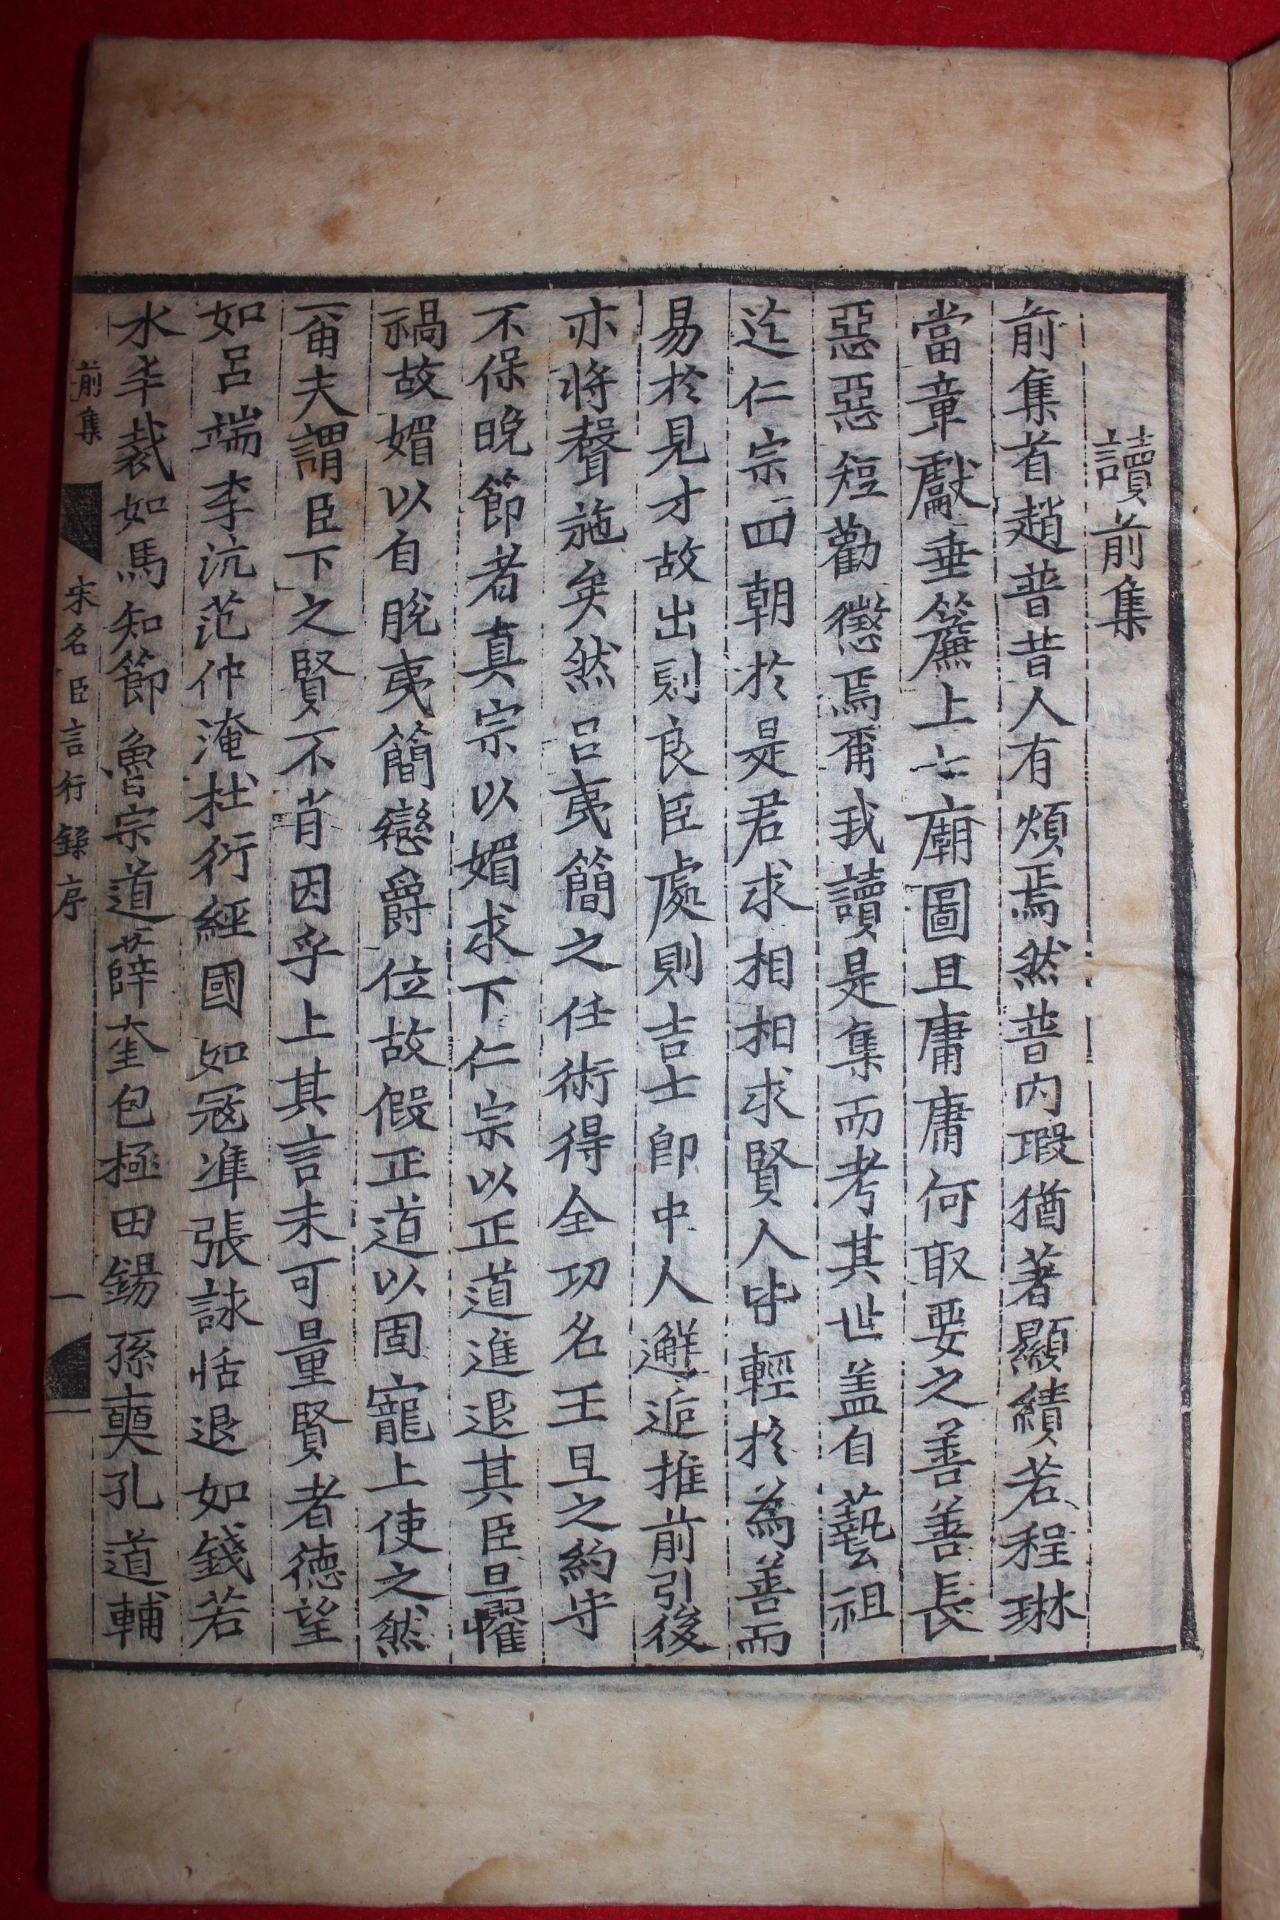 讀前集
前集首趙普昔人有煩焉然普內瑕猶著顯績若程琳
當章獻垂簾上七廟圖且庸庸何取要之善善長
惡惡短勸懲焉爾我讀是集而考其世盖自藝祖
迄仁宗四朝於是君求相相求賢人皆輕於為善而
易於見才故出則良臣處則吉士即中人邂逅推前引後
亦將聲施矣然呂夷簡之任術得全功名王旦之約守
不保晚節者真宗以媚求下仁宗以正道進退其臣旦懼
禍故媚以自脫夷簡戀爵位故假正道以固寵上使之然
啇夫謂臣下之賢不肖因乎上其言未可量賢者德望
如呂端李沆范仲淹杜衍經國如寇準張詠恬退如錢若
水羊裁如馬知節魯宗道薛奎包極田錫孫奭孔道輔
前集 宋名臣言行錄序 一